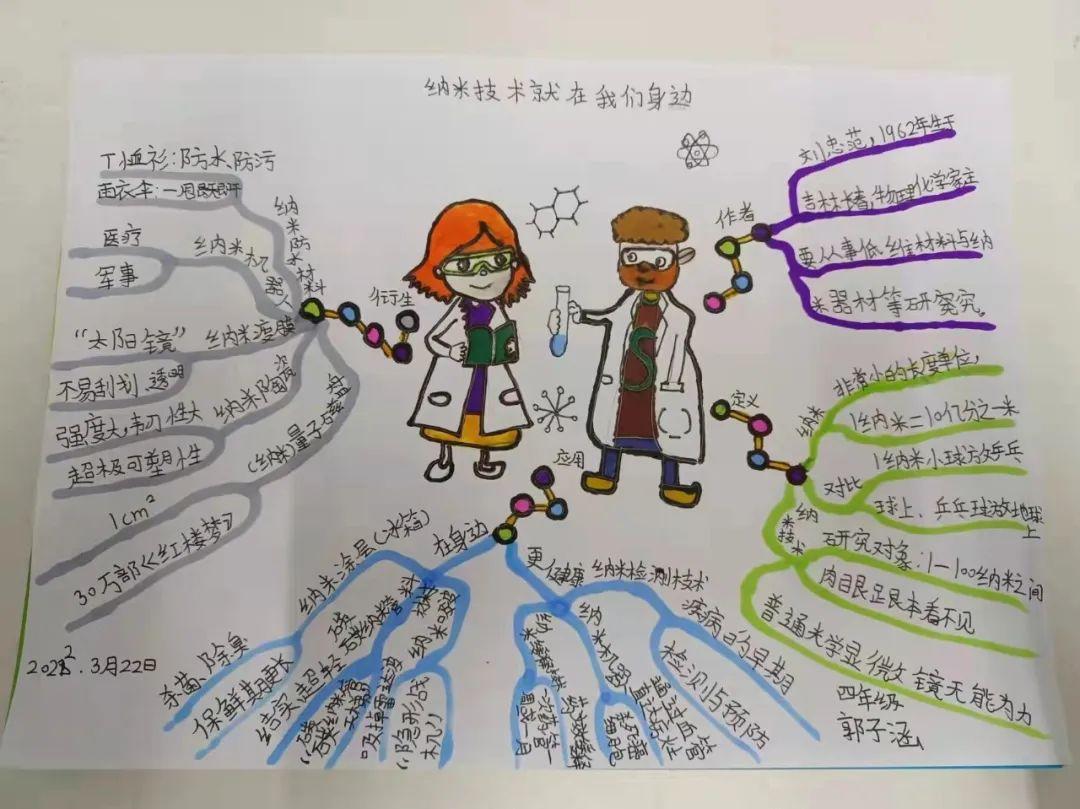 纳米技术就在我们身边
T恤衫:防水、防污
雨衣伞:一甩既干
纳米防水材料
医疗
军事
纳米机器人
"太阳镜"
纳米薄膜
不易刮划、透明
强度大,韧性大
纳米陶瓷
超极可塑性
(纳米)量子磁盘
1cm²
30万部《红楼梦》
衍生
作者
刘忠范,1962年生于
吉林长春,物理化学家主
要从事低维材料与纳
米器材等研究究。
定义
纳米
非常小的长度单位,
1纳米=10亿分之一米
对比
1纳米小球放乒乓
球上、乒乓球放地球
上
纳米技术
研究对象:1—100纳米之间
肉眼跟本看不见
普通光学显微镜无能为力
应用
在身边
纳米涂层(冰箱)
杀菌、除臭
保鲜期更长
结实超轻
吸掉雷达波
"隐形战
机"
更健康
纳米检测技术
疾病的早期
检测与预防
纳米机器
通过血管
直达病灶
2022.3月22日
四年级
郭子涵